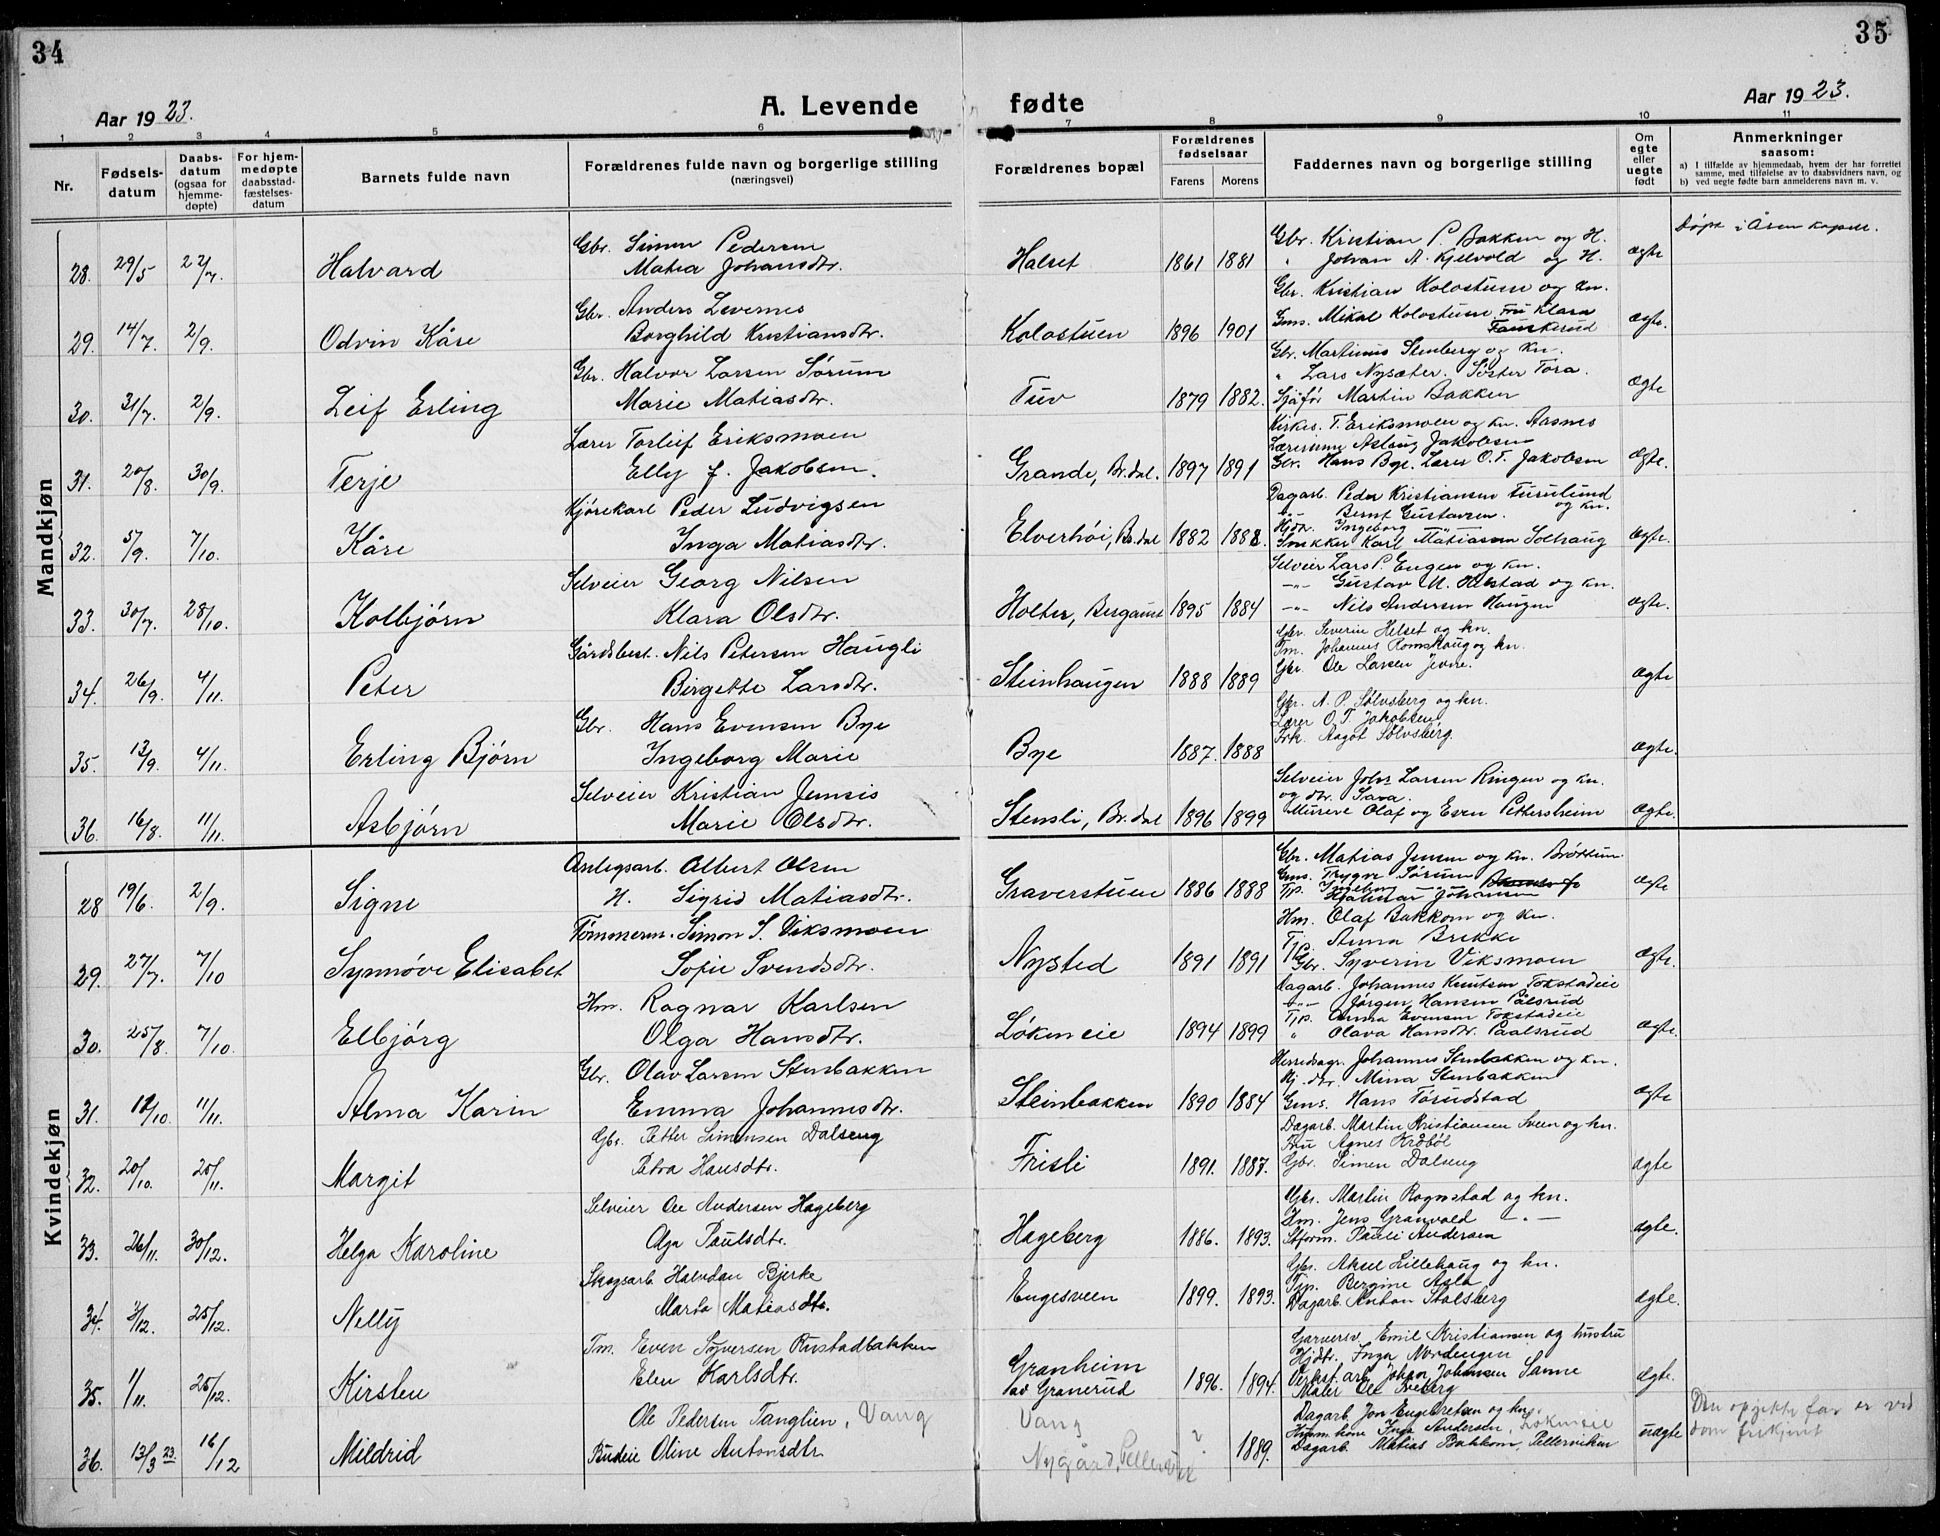 34
35
Aar 1923.
A. Levende fødte
Aar 1923.
1 2 3 4 5 6 7 8 9 10 11
Nr.
Fødsels-
datum
Daabs-
datum
(ogsaa for
hjemme-
døpte)
For hjem-
medøpte
daabsstad-
fæstelses-
datum
Barnets fulde navn
Forældrenes fulde navn og borgerlige stilling
(næringsvei)
Forældrenes bopæl
Forældrenes
fødselsaar
Farens Morens
Faddernes navn og borgerlige stilling
Om
egte
eller
uegte
født
Anmerkninger
saasom:
a) I tilfælde av hjemmedaab, hvem der har forrettet
samme, med tilføielse av to daabsvidners navn, og
b) ved uegte fødte barn anmelderens navn m. v.
Mandkjøn
28. 29/5 22/7. Halvard
Gbr. Simen Pedersen
Matea Johansdtr.
Halset 1861 1881
Gbr. Kristian P. Bakken og H.
" Johan A. Kjelvold og H.
ægte
Døpt i Åsen kapell.
29. 14/7. 2/9. Odvin Kåre
Gbr. Anders Levernes
Borghild Kristiansdtr.
Kolostuen 1896 1901
Gbr. Kristian Kolostuen og kn.
Gms. Mikal Kolostuen. Fru Klara
Fauskerud
ægte.
30. 31/7. 2/9. Leif Erling
Gbr. Halvor Larsen Sørum
Marie Matiasdtr.
Tuv 1879 1882.
Gbr. Martinus Stenberg og kn.
" Lars Nysæter. Søster Tora.
Sjåfør Martin Bakken
ægte
31. 20/8. 30/9. Terje
Lærer Torleif Eriksmoen
Elly f. Jakobsen.
Grande, Br.dal. 1897 1891
Kirkes. T. Eriksmoen og kn. Aasnes
Lærerinne Aslaug Jakobsen
Gbr. Hans Bye. Lærer O.T. Jakobsen
ægte.
32. 5/9. 7/10. Kåre
Kjørekarl Peder Ludvigsen
Inga Matiasdtr.
Elverhøi, Br.dal 1882 1882.
Dagarb. Peder Kristiansen Furulund
og kn.
-"- Bernt Gustavsen.
Hjdtr. Ingeborg -"-
Snekker Karl Matiassen Solhaug
ægte.
33. 30/7. 28/10. Kolbjørn
Selveier Georg Nilsen
Klara Olsdtr.
Holter, Bergaust 1895 1884
Selveier Lars P. Engen og kn.
-"- Gustav M. Helstad og kn.
-"- Nils Andersen Haugen
ægte.
34. 26/9. 4/11. Peter
Gårdsbest. Nils Petersen Haugli
Birgette Larsdtr.
Steinhaugen 1888 1889
Gbr. Severin Helset og kn.
Tm. Johannes Romskaug og kn.
Gbr. Ole Larsen Jevne.
ægte
35. 13/9. 4/11. Erling Bjørn
Gbr. Hans Evensen Bye
Ingeborg Marie
Bye 1887. 1888
Gbr. A. P. Sølvsberg og kn.
Lærer O. T. Jakobsen
Frk. Aagot Sølvsberg.
ægte.
36. 16/8. 11/11. Asbjørn
Selveier Kristian Jensis
Marie Olsdtr.
Stensli, Br.dal 1896 1899
Selveier Johs Larsen Ringen og kn.
og dtr. Sava.
Murere Olaf og Even Pettersheim
ægte.
Kvindekjøn
28 19/6. 2/9. Signe
Anlegsarb. Albert Olsen
H. Sigrid Matiasdtr.
Graverstuen 1886 1888
Gbr. Matias Jensen og kn. Brøttum
Gms. Trygve Sørum
Tjp. Ingeborg
Hjalmar Johansen
ægte
29. 27/7. 7/10 Synnøve Elisabet
Tømmerm. Simon S. Viksmoen
Sofie Svendsdtr.
Nysted 1891 1891
Hm. Olaf Bakkom og kn.
Tjp. Anna Brekke
Gbr. Syverin Viksmoen
ægte.
30. 25/8. 7/10. Elbjørg
Hm. Ragnar Karlsen
Olga Hansdtr.
Løkeneie 1894 1899
Dagarb. Johannes Knutsen Tokstadeie
-"- Jørgen Hansen Pålsrud
Tjp. Anna Evensen Tokstadeie
" Olava Hansdtr. Paalsrud
ægte.
31. 12/10. 11/11. Alma Karin
Gbr. Olav Larsen Stenbakken
Emma Johannesdtr.
Steinbakken 1890 1884
Herredsagr. Johannes Stenbakken og kn.
Hj. dtr. Mina Stenbakken
Gms. Hans Torudstad
ægte
32. 20/10. 25/11. Margit
Gbr. Petter Simensen Dalseng
Petra Hansdtr.
Frisli 1891. 1887.
Dagarb. Martin Kristiansen Sveen og kn.
Fru Agnes Krabøl
Gbr. Simen Dalseng
ægte
33. 26/11. 30/12. Helga Karoline
Selveier Ole Andersen Hageberg
Olga Paulsdtr.
Hageberg 1886. 1893.
Gbr. Martin Rognstad og kn.
Hm. Jens Granvold -"-
Stform. Pauli Andersen
ægte.
34. 3/12. 25/12. Nelly
Skogsarb. Halvdan Bjerke
Marta Matiasdtr.
Engesveen 1899. 1893.
Gbr. Aksel Lillehaug og kn.
Tjp. Bergine Asla
Dagarb. Anton Stalsberg
ægte.
35. 1/11. 25/12. Kirsten
Tm. Even Syversen Rustadbakken
Elen Karlsdtr.
Granheim
av Granerud 1896. 1894.
Garversv. Emil Kristiansen og hustru
Hjdtr. Inga Nordengen
Verkst.arb. Johan Johansen Sanne
Maler Ole Freberg
ægte.
36. 13/3 23. 16/12 Mildrid
Ole Pedersen Tanglien, Vang
Budeie Oline Antonsdtr
Vang
Nygård,
? 1889.
Dagarb. Jon Engebretsen og kn.
Husm.kone Inga Andersen, Løkeneie
Dagarb. Matias Bakkom, Pellerviken
uægte
Den opgitte far er ved
dom frikjent